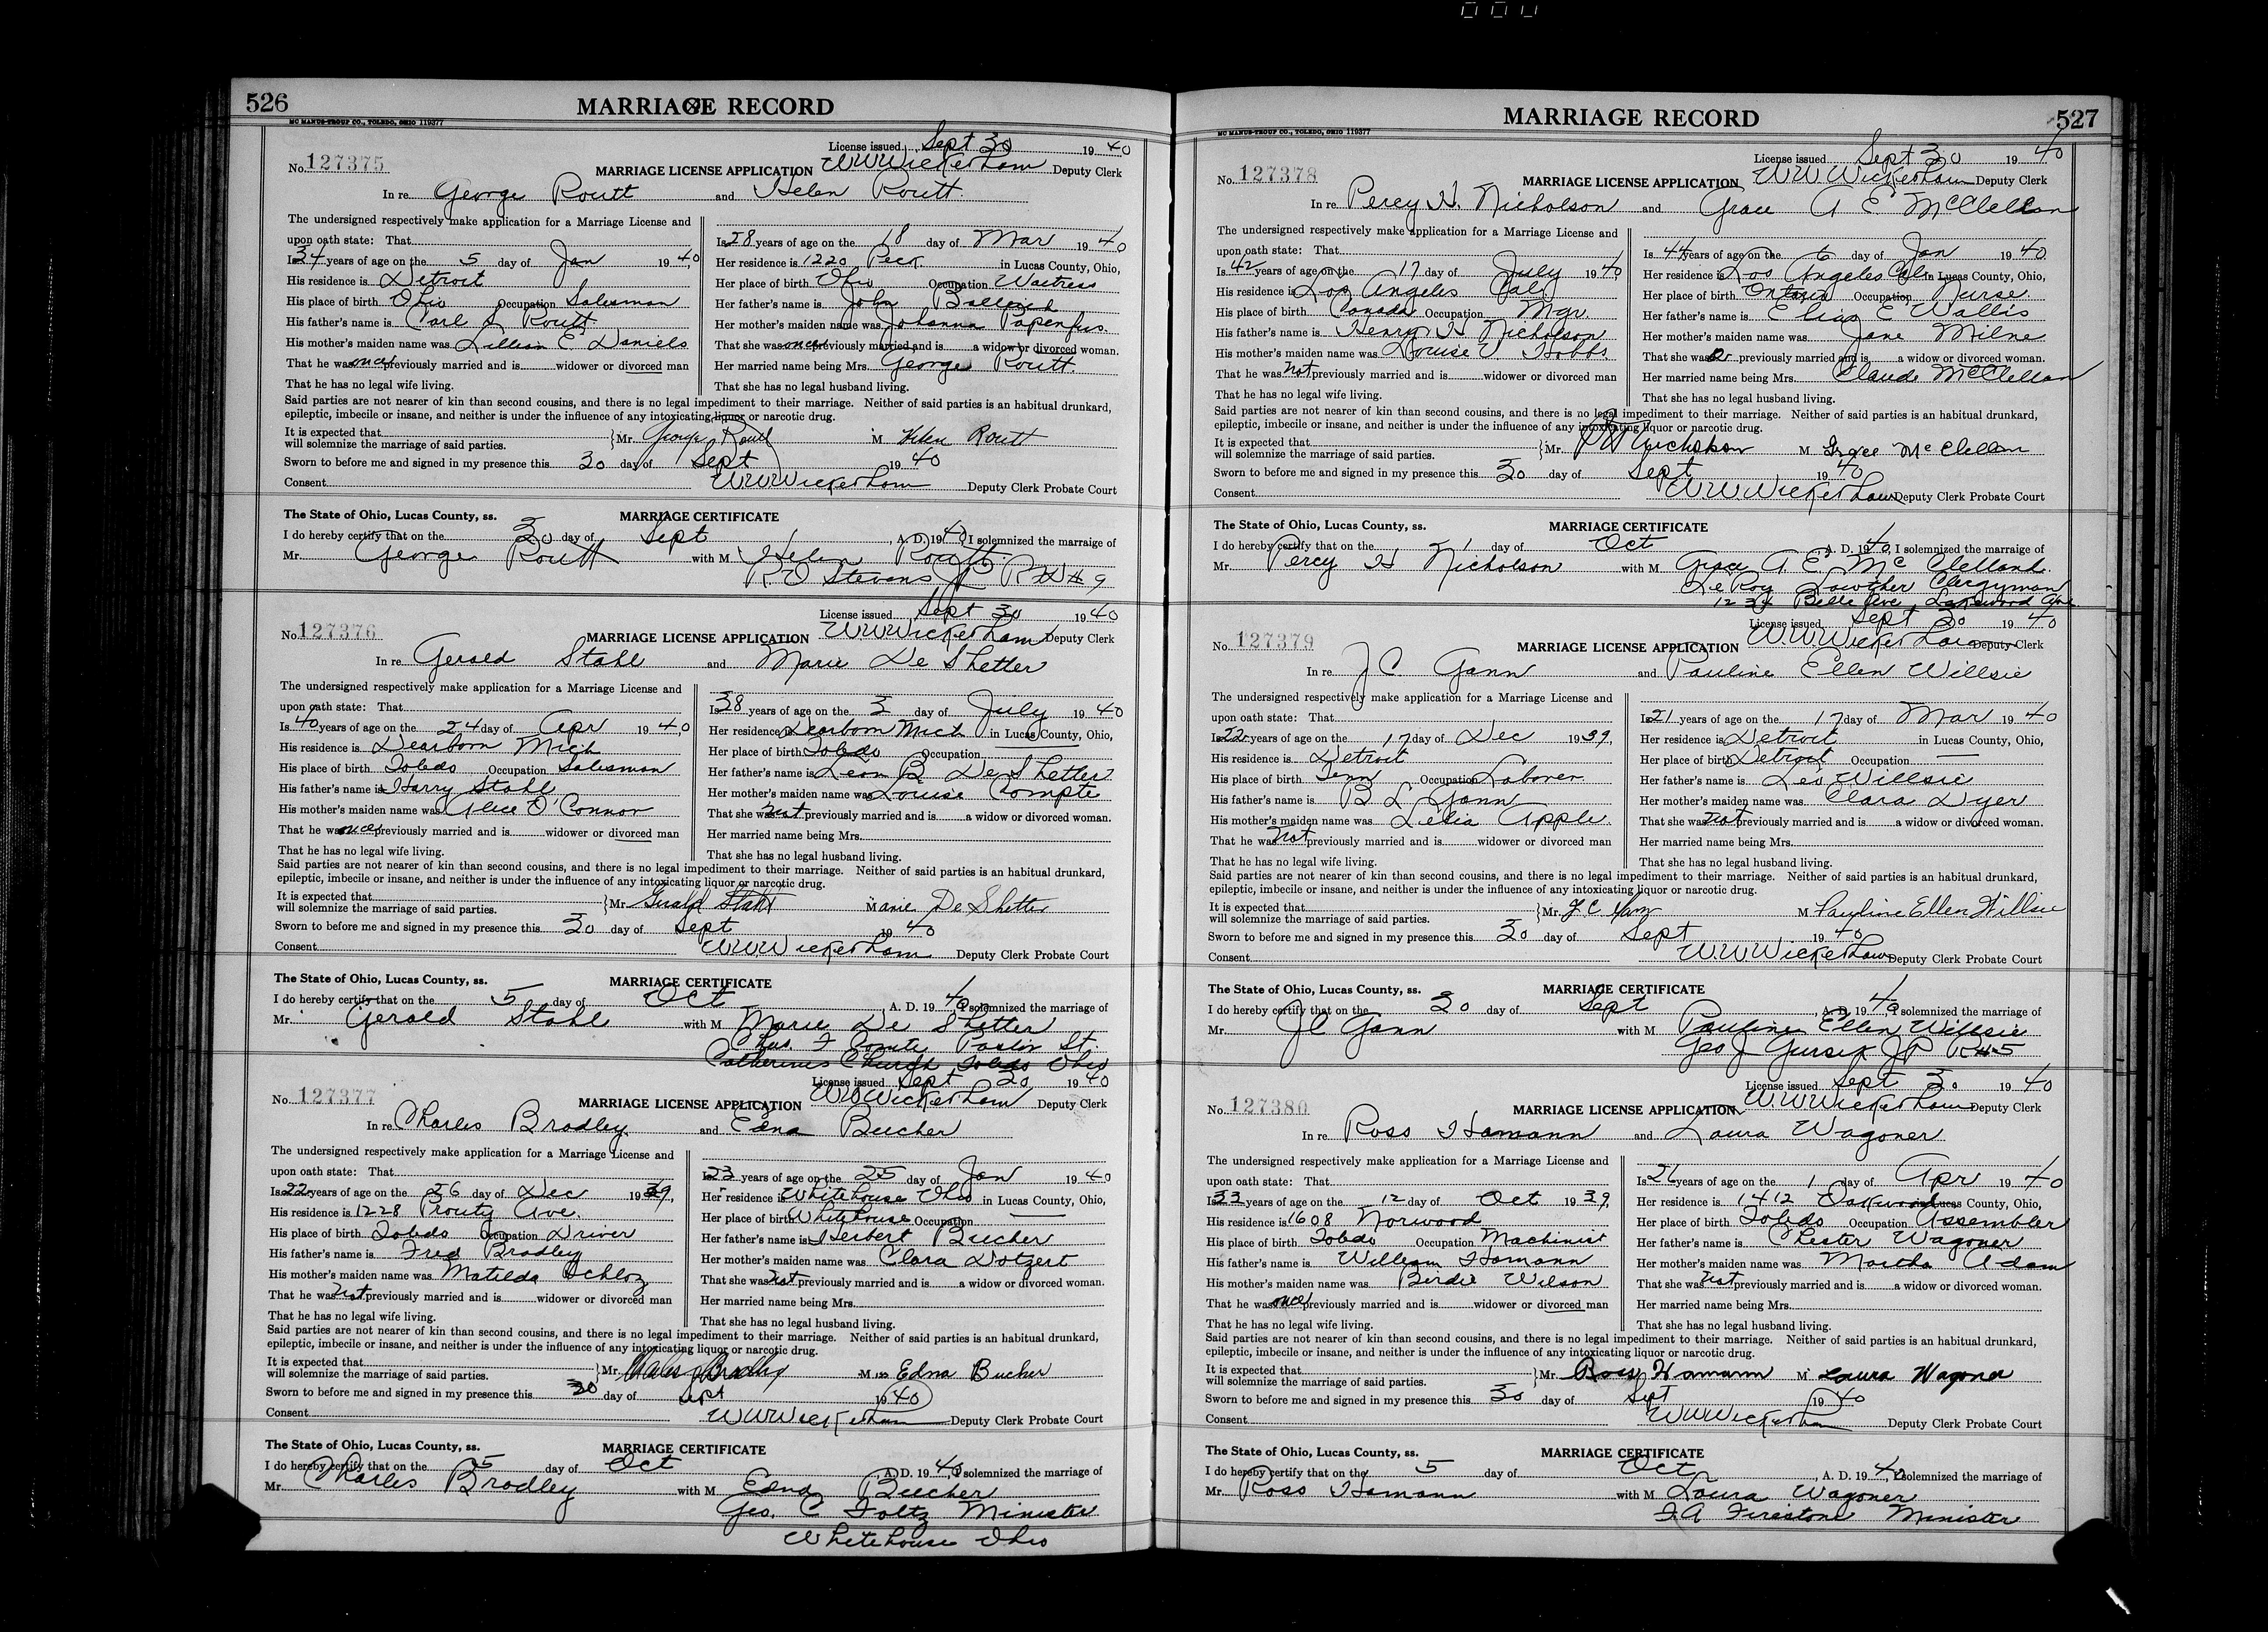 526
MARRIAGE RECORD
MC MANUS-TROUP CO., TOLEDO, OHIO 119377
License issued Sept 30 1940
No. 127375 MARRIAGE LICENSE APPLICATION W W Wickerham Deputy Clerk
In re George Routt and Helen Routt
The undersigned respectively make application for a Marriage License and
upon oath state: That
Is 34 years of age on the 5 day of Jan 1940
His residence is Detroit
His place of birth Ohio Occupation Salesman
His father's name is Carl S Routt
His mother's maiden name was Lillian E Daniels
That he was once previously married and is widower or divorced man
That he has no legal wife living.
Is 28 years of age on the 18 day of Mar 1940
Her residence is 1220 Peck in Lucas County, Ohio,
Her place of birth Ohio Occupation Waitress
Her father's name is John
Her mother's maiden name was Johanna Papenfus
That she was once previously married and is a widow or divorced woman.
Her married name being Mrs. George Routt
That she has no legal husband living.
Said parties are not nearer of kin than second cousins, and there is no legal impediment to their marriage. Neither of said parties is an habitual drunkard,
epileptic, imbecile or insane, and neither is under the influence of any intoxicating liquor or narcotic drug.
It is expected that
will solemnize the marriage of said parties. } Mr. George Routt M Helen Routt
Sworn to before me and signed in my presence this 30 day of Sept 1940
Consent W W Wickerham Deputy Clerk Probate Court
The State of Ohio, Lucas County, ss. MARRIAGE CERTIFICATE
I do hereby certify that on the 30 day of Sept, A. D. 1940 I solemnized the marraige of
Mr. George Routt with M Helen Routt
R O Stevens JP R #9
License issued Sept 30 1940
No. 127376 MARRIAGE LICENSE APPLICATION W W Wickerham Deputy Clerk
In re Gerald Stahl and Marie De Shetler
The undersigned respectively make application for a Marriage License and
upon oath state: That
Is 40 years of age on the 24 day of Apr 1940
His residence is Dearborn Mich
His place of birth Toledo Occupation Salesman
His father's name is Harry Stahl
His mother's maiden name was Alice O'Connor
That he was once previously married and is widower or divorced man
That he has no legal wife living.
Is 38 years of age on the 3 day of July 1940
Her residence is Dearborn Mich in Lucas County, Ohio,
Her place of birth Toledo Occupation
Her father's name is Leon B De Shetler
Her mother's maiden name was Louise Compte
That she was not previously married and is a widow or divorced woman.
Her married name being Mrs.
That she has no legal husband living.
Said parties are not nearer of kin than second cousins, and there is no legal impediment to their marriage. Neither of said parties is an habitual drunkard,
epileptic, imbecile or insane, and neither is under the influence of any intoxicating liquor or narcotic drug.
It is expected that
will solemnize the marriage of said parties. } Mr. Gerald Stahl Marie De Shetler
Sworn to before me and signed in my presence this 30 day of Sept 1940
Consent W W Wickerham Deputy Clerk Probate Court
The State of Ohio, Lucas County, ss. MARRIAGE CERTIFICATE
I do hereby certify that on the 5 day of Oct A. D. 1940 I solemnized the marriage of
Mr. Gerald Stahl with M Marie De Shetler
Chas. F Comte Pastor St.
Catherines Church Toledo Ohio
License issued Sept 30 1940
No. 127377 MARRIAGE LICENSE APPLICATION W W Wickerham Deputy Clerk
In re Charles Bradley and Edna Buecher
The undersigned respectively make application for a Marriage License and
upon oath state: That
Is 22 years of age on the 26 day of Dec 1939,
His residence is 1228 Prouty Ave.
His place of birth Toledo Occupation Driver
His father's name is Fred Bradley
His mother's maiden name was Matilda Schloz
That he was not previously married and is widower or divorced man
That he has no legal wife living.
Is 23 years of age on the 25 day of Jan 1940
Her residence is Whitehouse Ohio in Lucas County, Ohio,
Her place of birth Whitehouse Occupation —
Her father's name is Herbert Buecher
Her mother's maiden name was Clara Dotzert
That she was not previously married and is a widow or divorced woman.
Her married name being Mrs.
That she has no legal husband living.
Said parties are not nearer of kin than second cousins, and there is no legal impediment to their marriage. Neither of said parties is an habitual drunkard,
epileptic, imbecile or insane, and neither is under the influence of any intoxicating liquor or narcotic drug.
It is expected that
will solemnize the marriage of said parties. } Mr. Charles Bradley Miss Edna Bucher
Sworn to before me and signed in my presence this 30 day of Sept 1940
Consent W W Wickerham Deputy Clerk Probate Court
The State of Ohio, Lucas County, ss. MARRIAGE CERTIFICATE
I do hereby certify that on the 5 day of Oct, A. D. 1940, I solemnized the marriage of
Mr. Charles Bradley with M Edna Buecher
Geo. C Foltz Minister
Whitehouse Ohio
MARRIAGE RECORD
527
MC MANUS-TROUP CO., TOLEDO, OHIO 119377
License issued Sept 30 1940
No. 127378 MARRIAGE LICENSE APPLICATION W W Wickerham Deputy Clerk
In re Percy H. Nicholson and Grace A E McClellan
The undersigned respectively make application for a Marriage License and
upon oath state: That
Is 42 years of age on the 17 day of July 1940
His residence is Los Angeles Cal
His place of birth Canada Occupation Mgr
His father's name is Henry H Nicholson
His mother's maiden name was Louise V Hobbs
That he was not previously married and is widower or divorced man
That he has no legal wife living.
Is 44 years of age on the 6 day of Jan 1940
Her residence is Los Angeles Cal in Lucas County, Ohio,
Her place of birth Ontario Occupation Nurse
Her father's name is Elias E Wallis
Her mother's maiden name was Jane Milne
That she was previously married and is a widow or divorced woman.
Her married name being Mrs. Claude McClellan
That she has no legal husband living.
Said parties are not nearer of kin than second cousins, and there is no legal impediment to their marriage. Neither of said parties is an habitual drunkard,
epileptic, imbecile or insane, and neither is under the influence of any intoxicating liquor or narcotic drug.
It is expected that
will solemnize the marriage of said parties. } Mr. P H Nicholson M Grace McClellan
Sworn to before me and signed in my presence this 30 day of Sept 1940
Consent W W Wickerham Deputy Clerk Probate Court
The State of Ohio, Lucas County, ss. MARRIAGE CERTIFICATE
I do hereby certify that on the 1 day of Oct, A. D. 1940, I solemnized the marraige of
Mr. Percy H Nicholson with M Grace A E Mc Clelland
LeRoy Lawther Clergyman
1234 Belle Ave, Lakewood
License issued Sept 30 1940
No. 127379 MARRIAGE LICENSE APPLICATION W W Wickerham Deputy Clerk
In re J C Gann and Pauline Ellen Willsie
The undersigned respectively make application for a Marriage License and
upon oath state: That
Is 22 years of age on the 17 day of Dec 1939,
His residence is Detroit
His place of birth Tenn Occupation Laborer
His father's name is B L Gann
His mother's maiden name was Lelia Apple
That he was not previously married and is widower or divorced man
That he has no legal wife living.
Is 21 years of age on the 17 day of Mar 1940
Her residence is Detroit in Lucas County, Ohio,
Her place of birth Detroit Occupation —
Her father's name is Leo Willsie
Her mother's maiden name was Clara Dyer
That she was not previously married and is a widow or divorced woman.
Her married name being Mrs.
That she has no legal husband living.
Said parties are not nearer of kin than second cousins, and there is no legal impediment to their marriage. Neither of said parties is an habitual drunkard,
epileptic, imbecile or insane, and neither is under the influence of any intoxicating liquor or narcotic drug.
It is expected that
will solemnize the marriage of said parties. } Mr. J C Gann M Pauline Ellen Willsie
Sworn to before me and signed in my presence this 30 day of Sept 1940
Consent W W Wickerham Deputy Clerk Probate Court
The State of Ohio, Lucas County, ss. MARRIAGE CERTIFICATE
I do hereby certify that on the 30 day of Sept, A. D. 1940 I solemnized the marriage of
Mr. J C Gann with M Pauline Ellen Willsie
Geo J JP R#5
License issued Sept 30 1940
No. 127380 MARRIAGE LICENSE APPLICATION W W Wickerham Deputy Clerk
In re Ross Hamann and Laura Wagoner
The undersigned respectively make application for a Marriage License and
upon oath state: That
Is 33 years of age on the 12 day of Oct 1939,
His residence is 1608 Norwood
His place of birth Toledo Occupation Machinist
His father's name is William Hamann
His mother's maiden name was Birdie Wilson
That he was once previously married and is widower or divorced man
That he has no legal wife living.
Is 26 years of age on the 1 day of Apr 1940
Her residence is 1412 Oakwood Lucas County, Ohio,
Her place of birth Toledo Occupation Assembler
Her father's name is Chester Wagoner
Her mother's maiden name was Martha Adam
That she was not previously married and is a widow or divorced woman.
Her married name being Mrs.
That she has no legal husband living.
Said parties are not nearer of kin than second cousins, and there is no legal impediment to their marriage. Neither of said parties is an habitual drunkard,
epileptic, imbecile or insane, and neither is under the influence of any intoxicating liquor or narcotic drug.
It is expected that
will solemnize the marriage of said parties. } Mr. Ross Hamann M Laura Wagoner
Sworn to before me and signed in my presence this 30 day of Sept 1940
Consent W W Wickerham Deputy Clerk Probate Court
The State of Ohio, Lucas County, ss. MARRIAGE CERTIFICATE
I do hereby certify that on the 5 day of Oct, A. D. 1940, I solemnized the marriage of
Mr. Ross Hamann with M Laura Wagoner
F A Firestone Minister